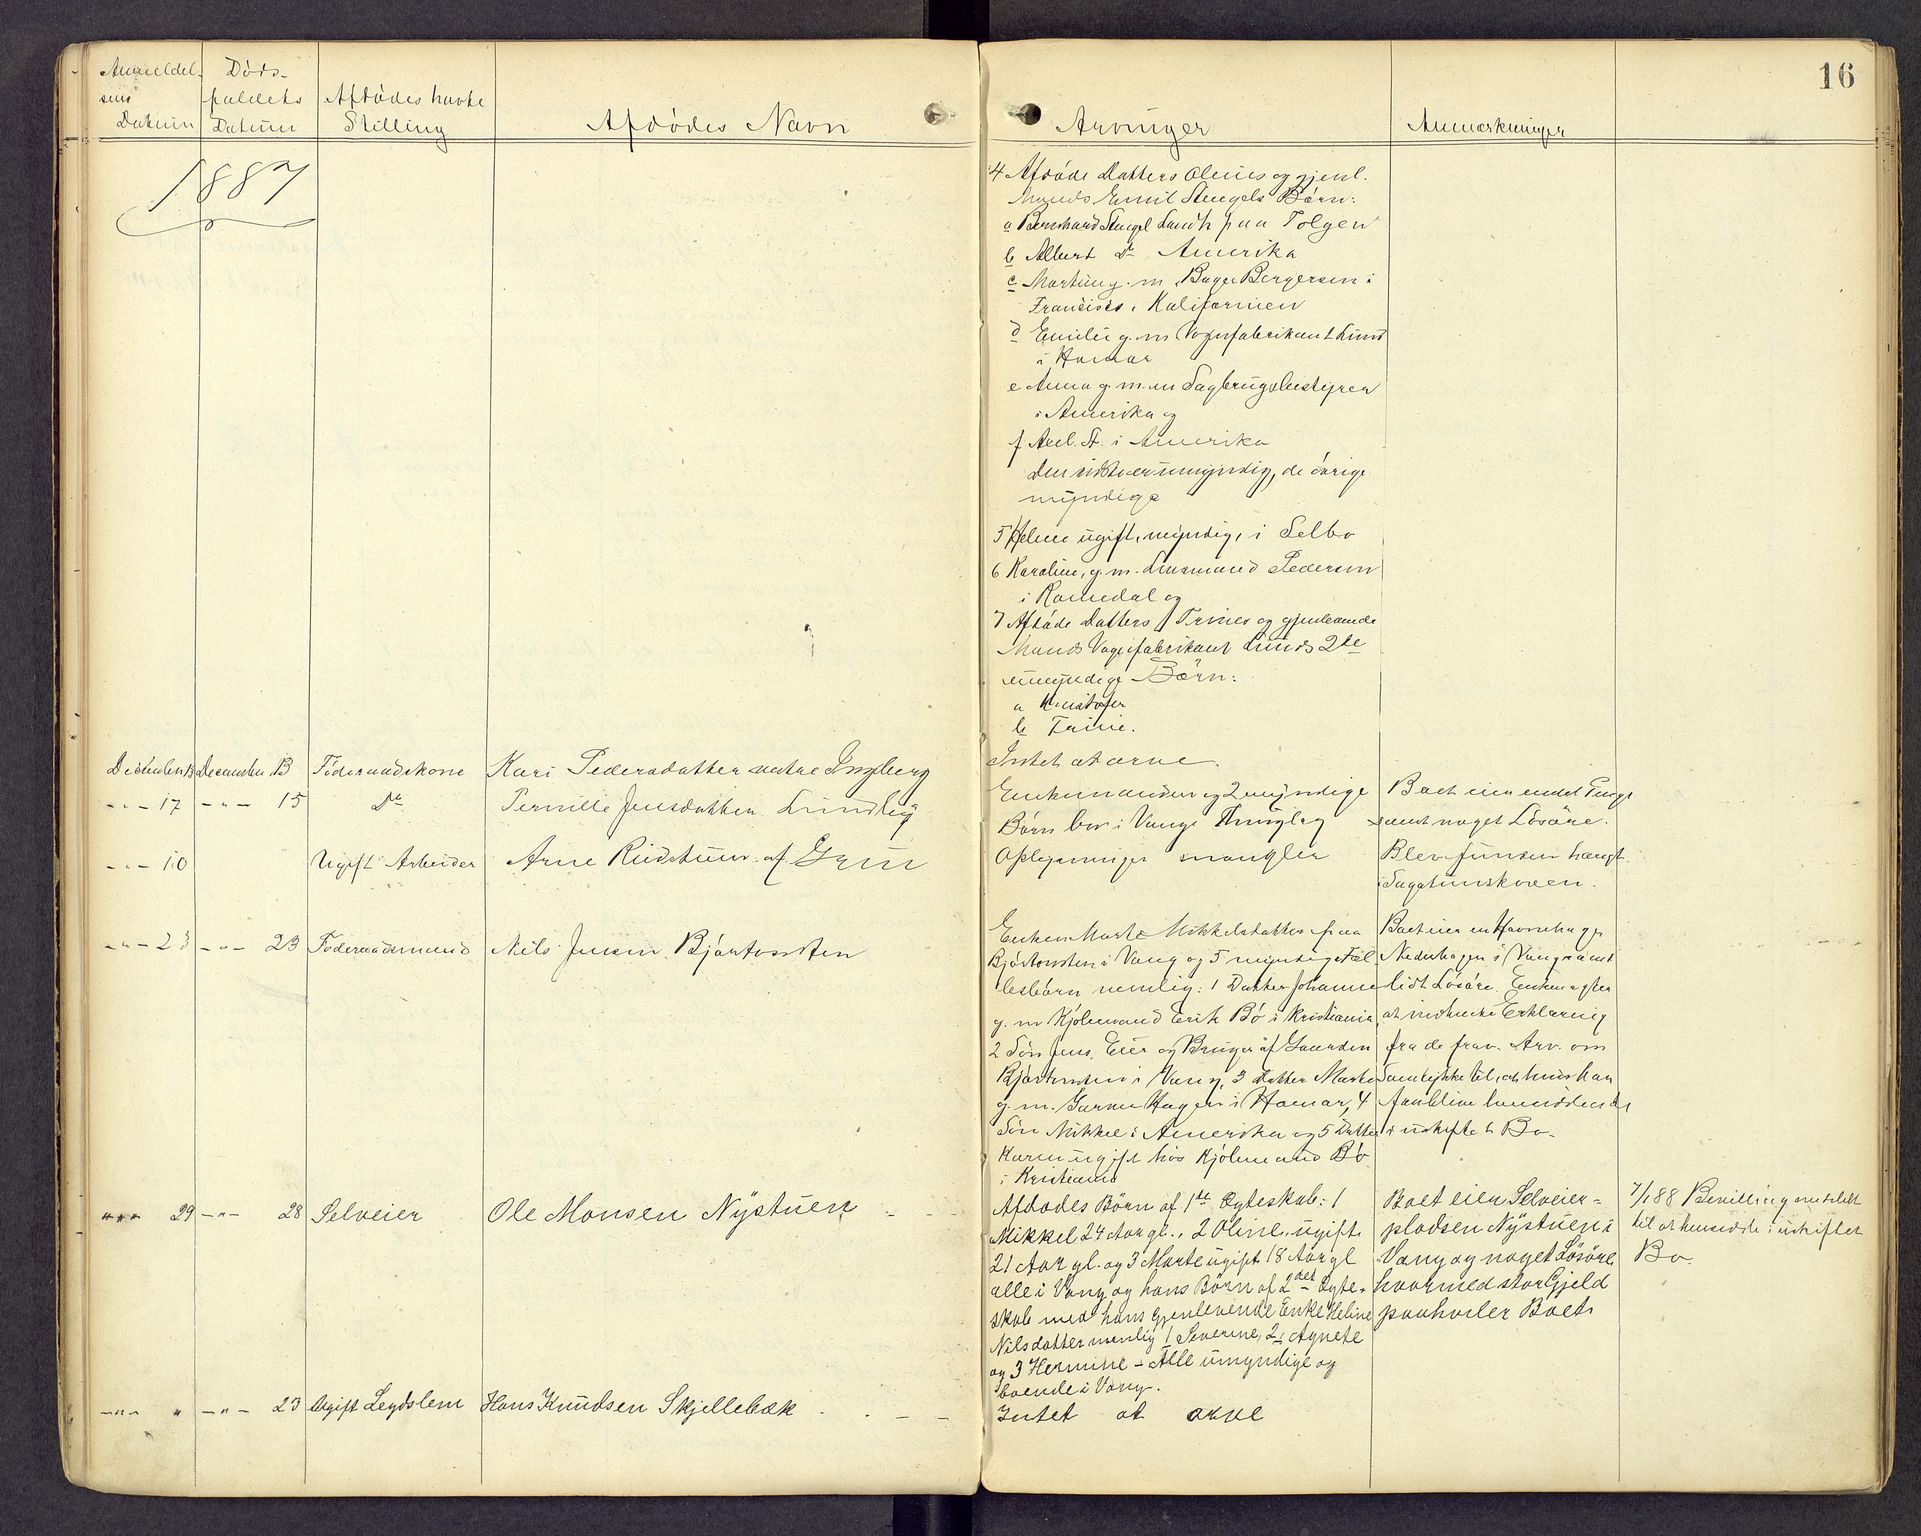 Anmeldel-
sens
Datum
Døds-
faldets
Datum
Afdødes havte
Stilling
Afdødes Navn
Arvinger
Anmærkninger
16
1887
4 Afdøde Datters Olines og gjenl.
Mands Emil Stengels Børn:
a Bernhard Stengel Landh paa Tolgen
b Albert Do Amerika
c Martin g. m. Bager Bergersen i
Francisco i Kalifornien
d Emilie g. m. Vognfabrikant Lund
i Hamar
e Anna g. m. en Sagbrugsbestyrer
i Amerika og
f Axel St. i Amerika
Den sidste er umyndig, de øvrige
myndige
5 Helene ugift, myndig, i Selbo
6 Karoline, g. m. Lensmand Pedersen
i Romedal og
7 Afdøde Datters Trines og gjenlevende
Mands Vognfabrikant Lunds 2de
umyndige Børn:
a Kristofer
b Trine.
December 13 December 13 Føderaadskone Kari Pedersdatter nedre Ingeberg
Intet at arve.
-"- 17 -"- 15 Do Pernille Jensdatter Lundbÿ
Enkemanden og 2 myndige
Børn bor i Vangs Thinglag
Boet eier
samt noget Løsøre.
-"- 10 Ugift Arbeider Arne Rudstuen af Grue
Oplysninger mangler
Blev funden hængt
i Sagatunskoven.
-"- 23 -"- 23 Føderaadsmand Nils Jensen Bjørtomten
Enken Marte Mikkelsdatter fraa
Bjørtomten i Vang og 5 myndige Fæl-
lesbørn nemlig: 1 Datter Johanne
g. m Kjølmand Erik Bø i Kristiania,
2 Søn Jens, Eier og Bruger af Gaarden
Bjørtomten i Vang, 3 Datter Marte
g. m. Garver Hagen i Hamar, 4
Søn Mikkel i Amerika og 5 Datter
Karen ugift hos Kjølmand Bø
i Kristiania
Boet eier en Havnehage
Nederhagen i Vang samt
lidt Løsøre. Enken agter
at indhente Erklæring
fra de frav. Arv. om
Samtykke til, at hun kan
forblive hensiddende
i uskiftet Bo.
-"- 29 -"- 28 Selveier Ole Monsen Nÿstuen
Afdødes Børn af 1ste Ægteskab: 1
Mikkel 24 Aar gl., 2 Oline, ugift
21 Aar gl. og 3 Marte ugift 18 Aar gl
alle i Vang og hans Børn af 2det Ægte-
skab med hans gjenlevende Enke Heline
Nilsdatter nemlig 1 Severine, 2, Agnete
og 3 Hermine - Alle umyndige og
boende i Vang.
Boet eier Selveier-
pladsen Nÿstuen i
Vang og noget Løsøre,
hvormed stor Gjeld
paahviler Boet.
7/1 88 Bevilling meddelt
til at hensidde i uskiftet
Bo.
-"- " -"- 23 Ugift Legdslem Hans Knudsen Skjellebæk
Intet at arve